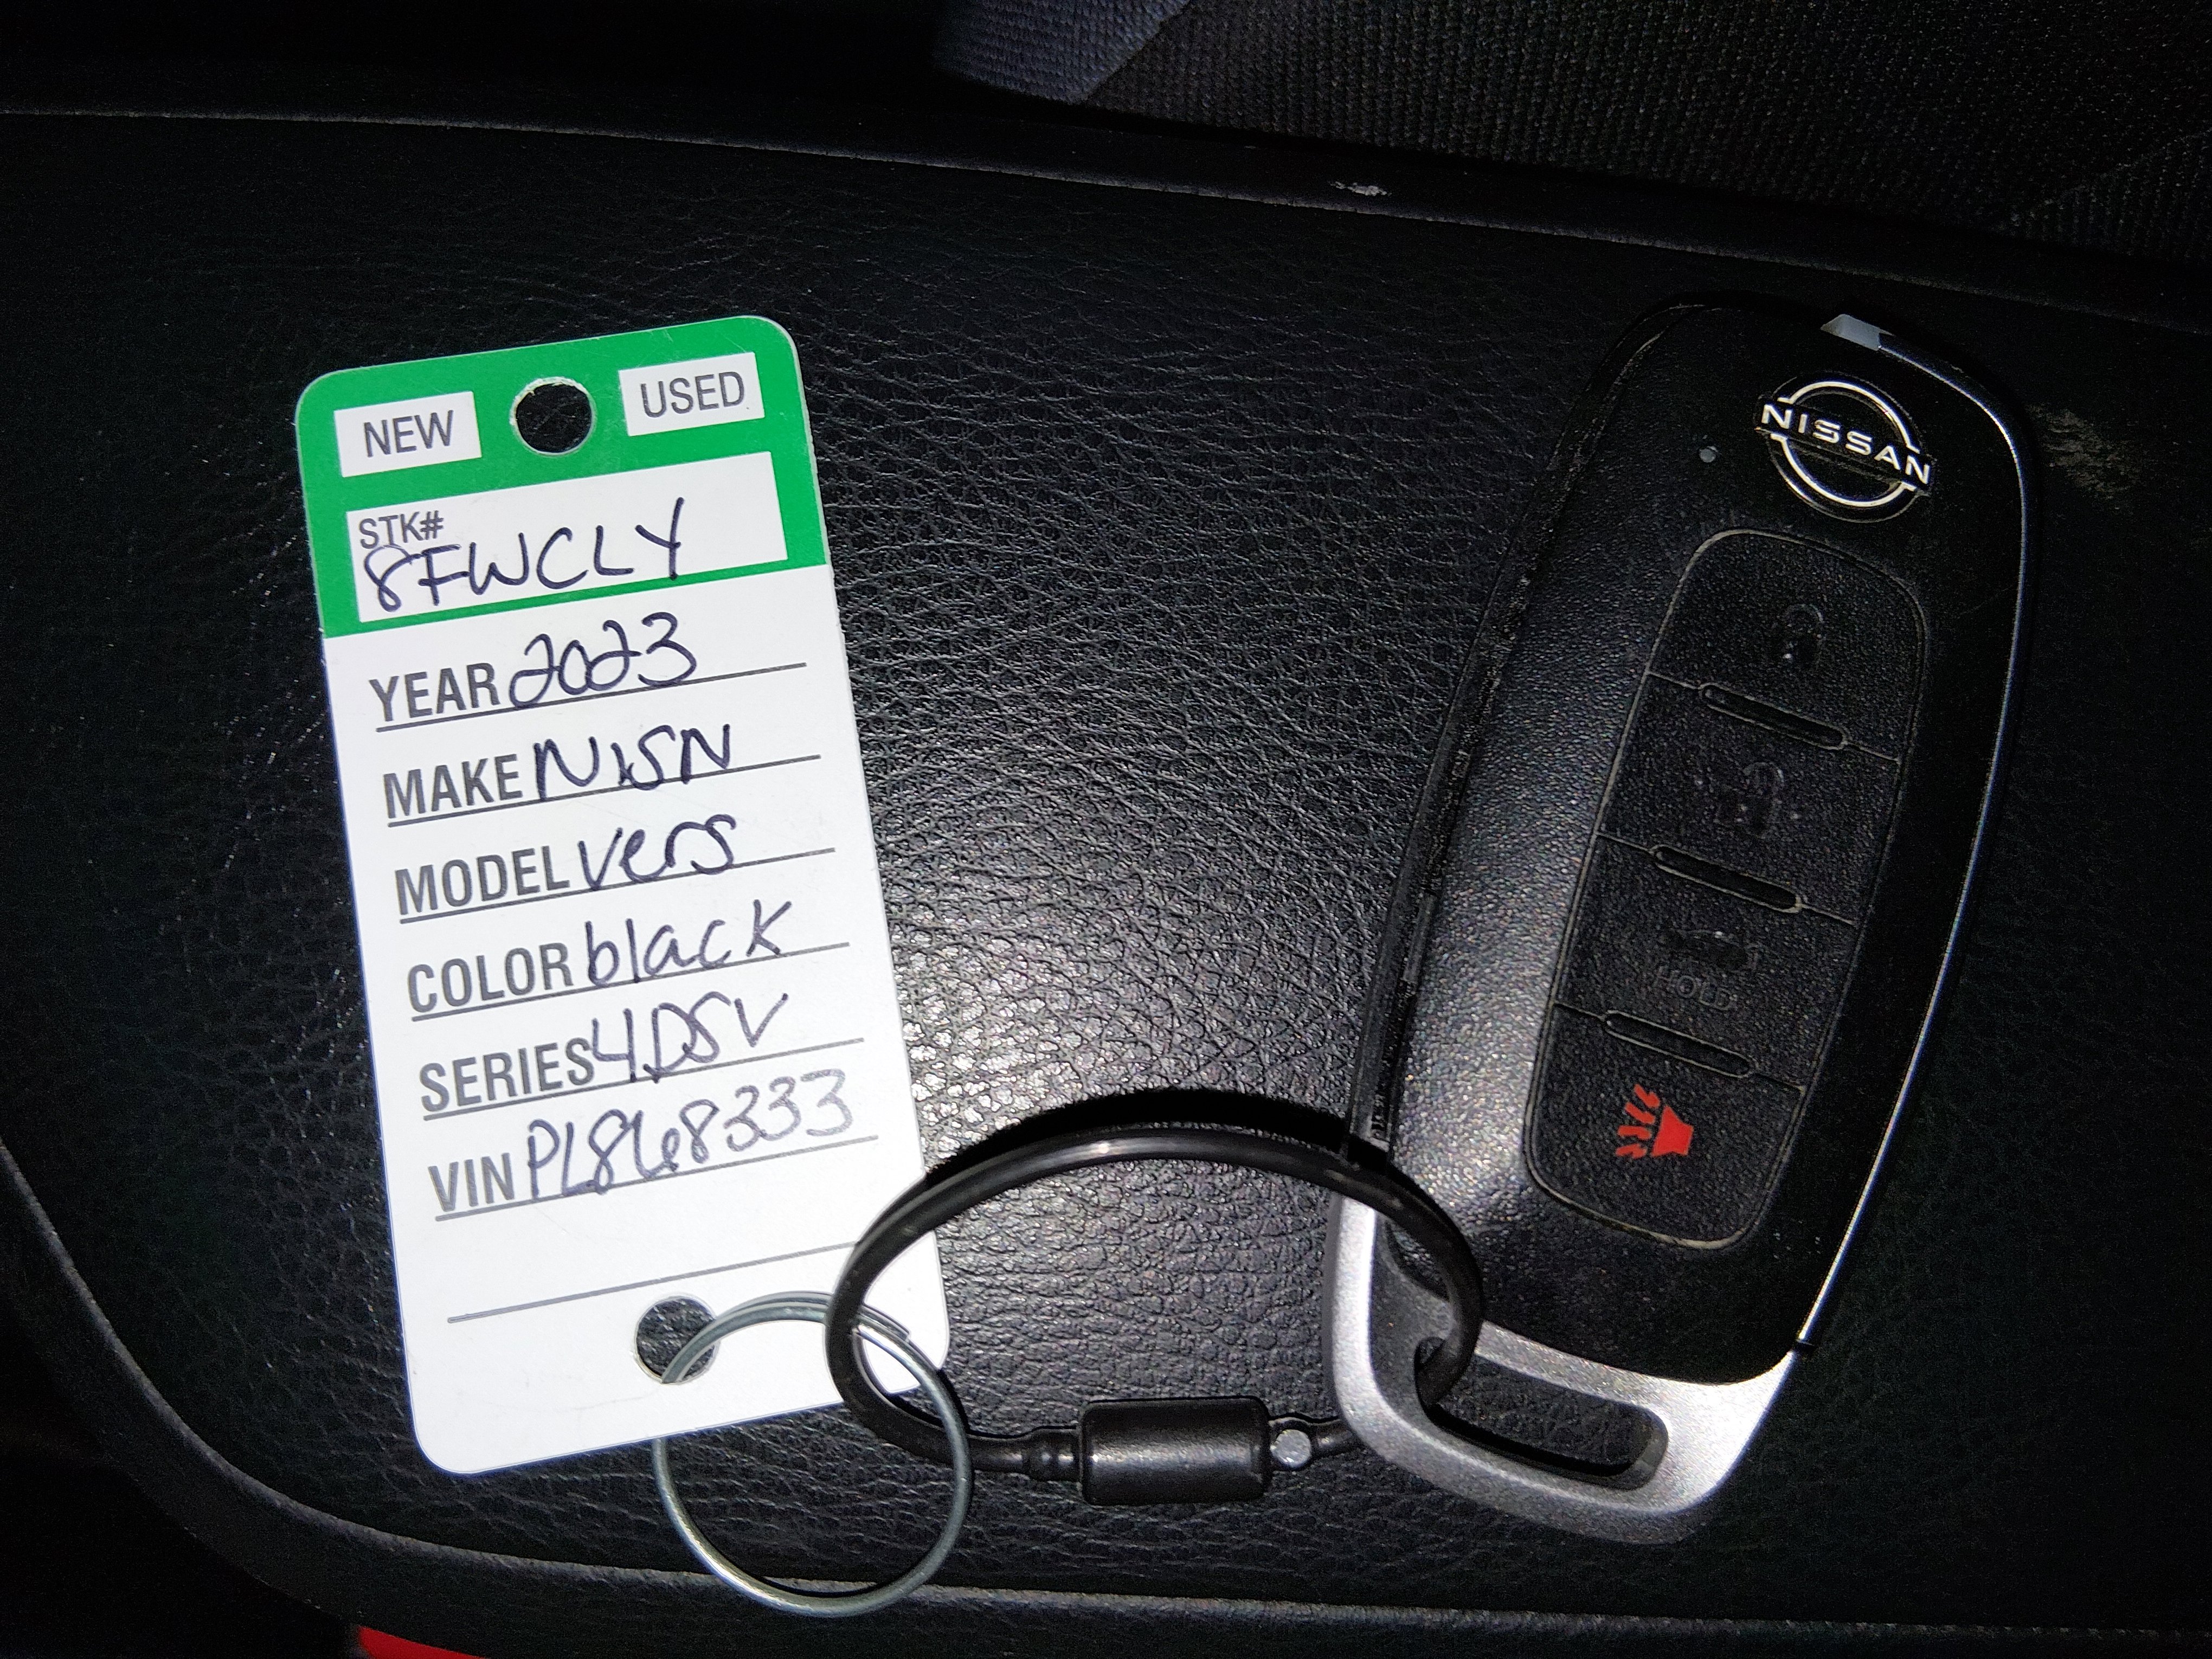 NEW USED
STK#
8FWCLY
YEAR 2023
MAKE NISN
MODEL vers
COLOR black
SERIES 4DSV
VIN PL868333
NISSAN
HOLD